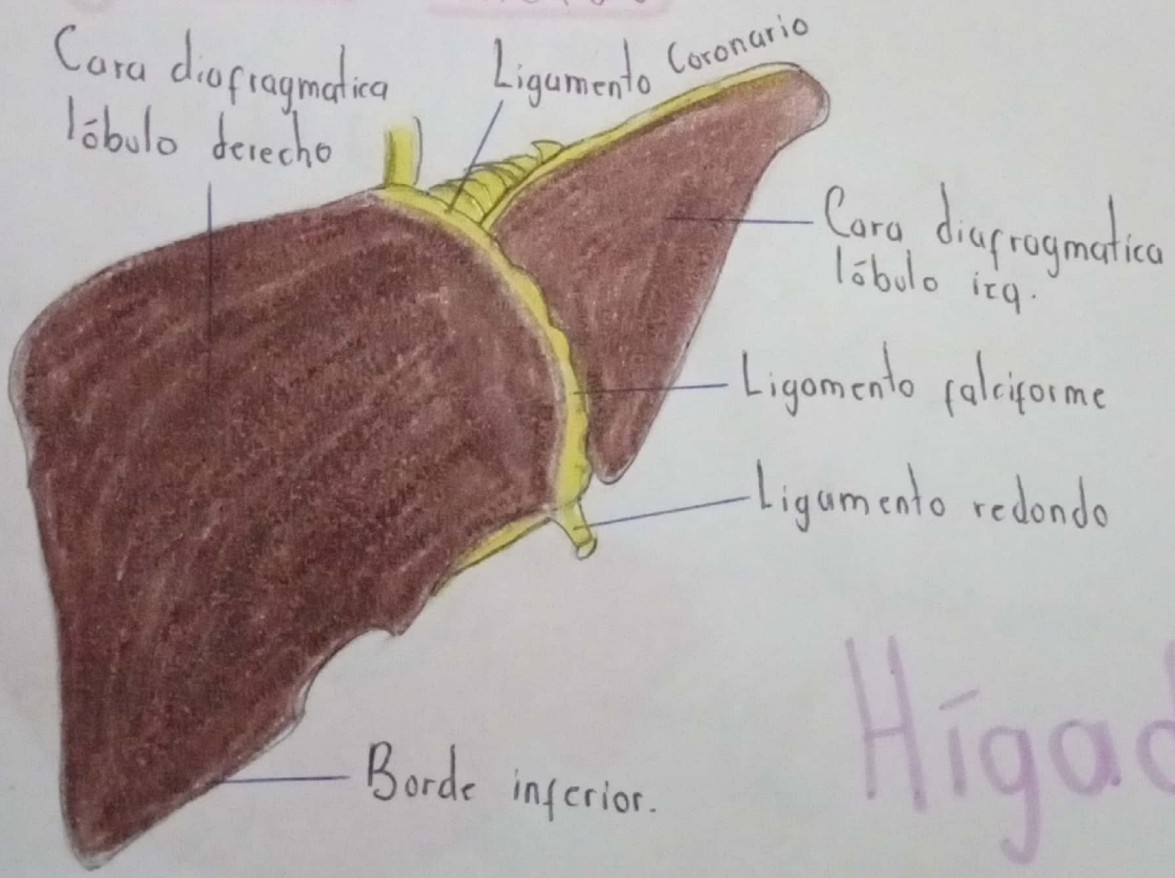 Cara diafragmatica
lóbulo derecho
Ligamento Coronario
Cara diafragmatica
lóbulo izq.
Ligamento falciforme
Ligamento redondo
Borde inferior.